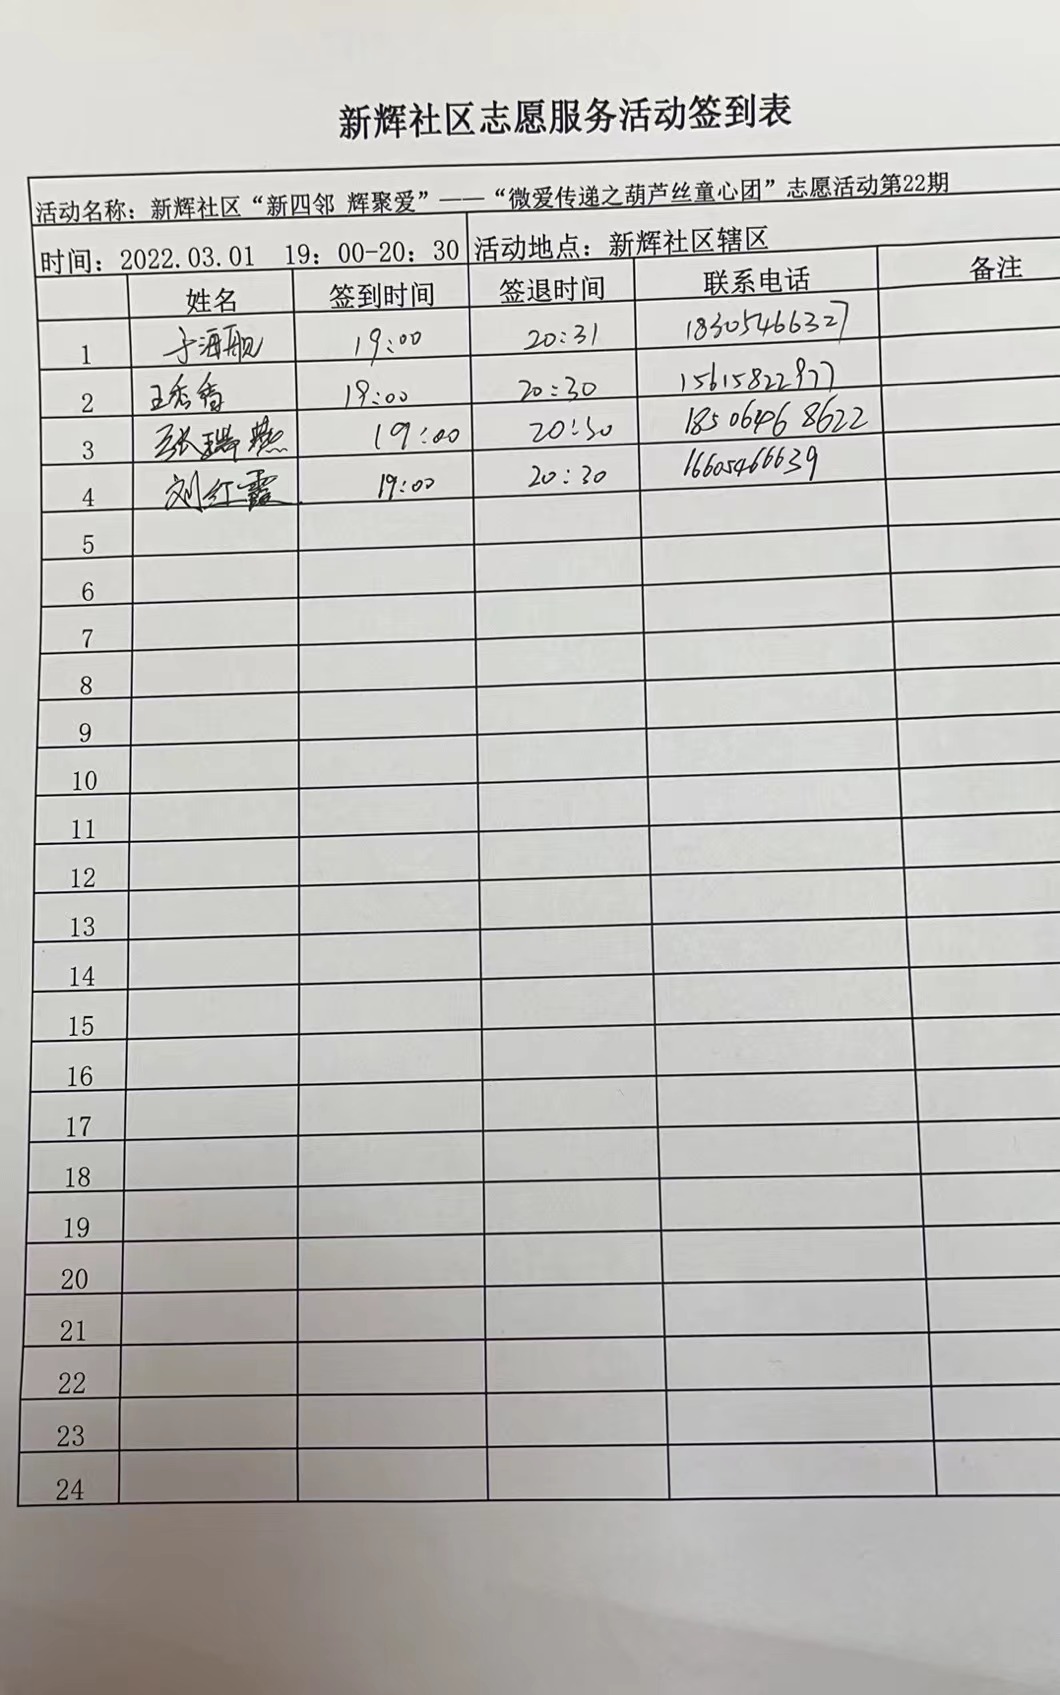 新辉社区志愿服务活动签到表
活动名称：新辉社区“新四邻 辉聚爱”——“微爱传递之葫芦丝童心团”志愿活动第22期
时间：2022.03.01 19：00-20：30 活动地点：新辉社区辖区
姓名 签到时间 签退时间 联系电话 备注
1 于海舰 19:00 20:31 18305466327
2 王秀香 19:00 20:30 15615822977
3 张瑞燕 19:00 20:30 18506468622
4 刘红霞 19:00 20:30 16605466639
5
6
7
8
9
10
11
12
13
14
15
16
17
18
19
20
21
22
23
24